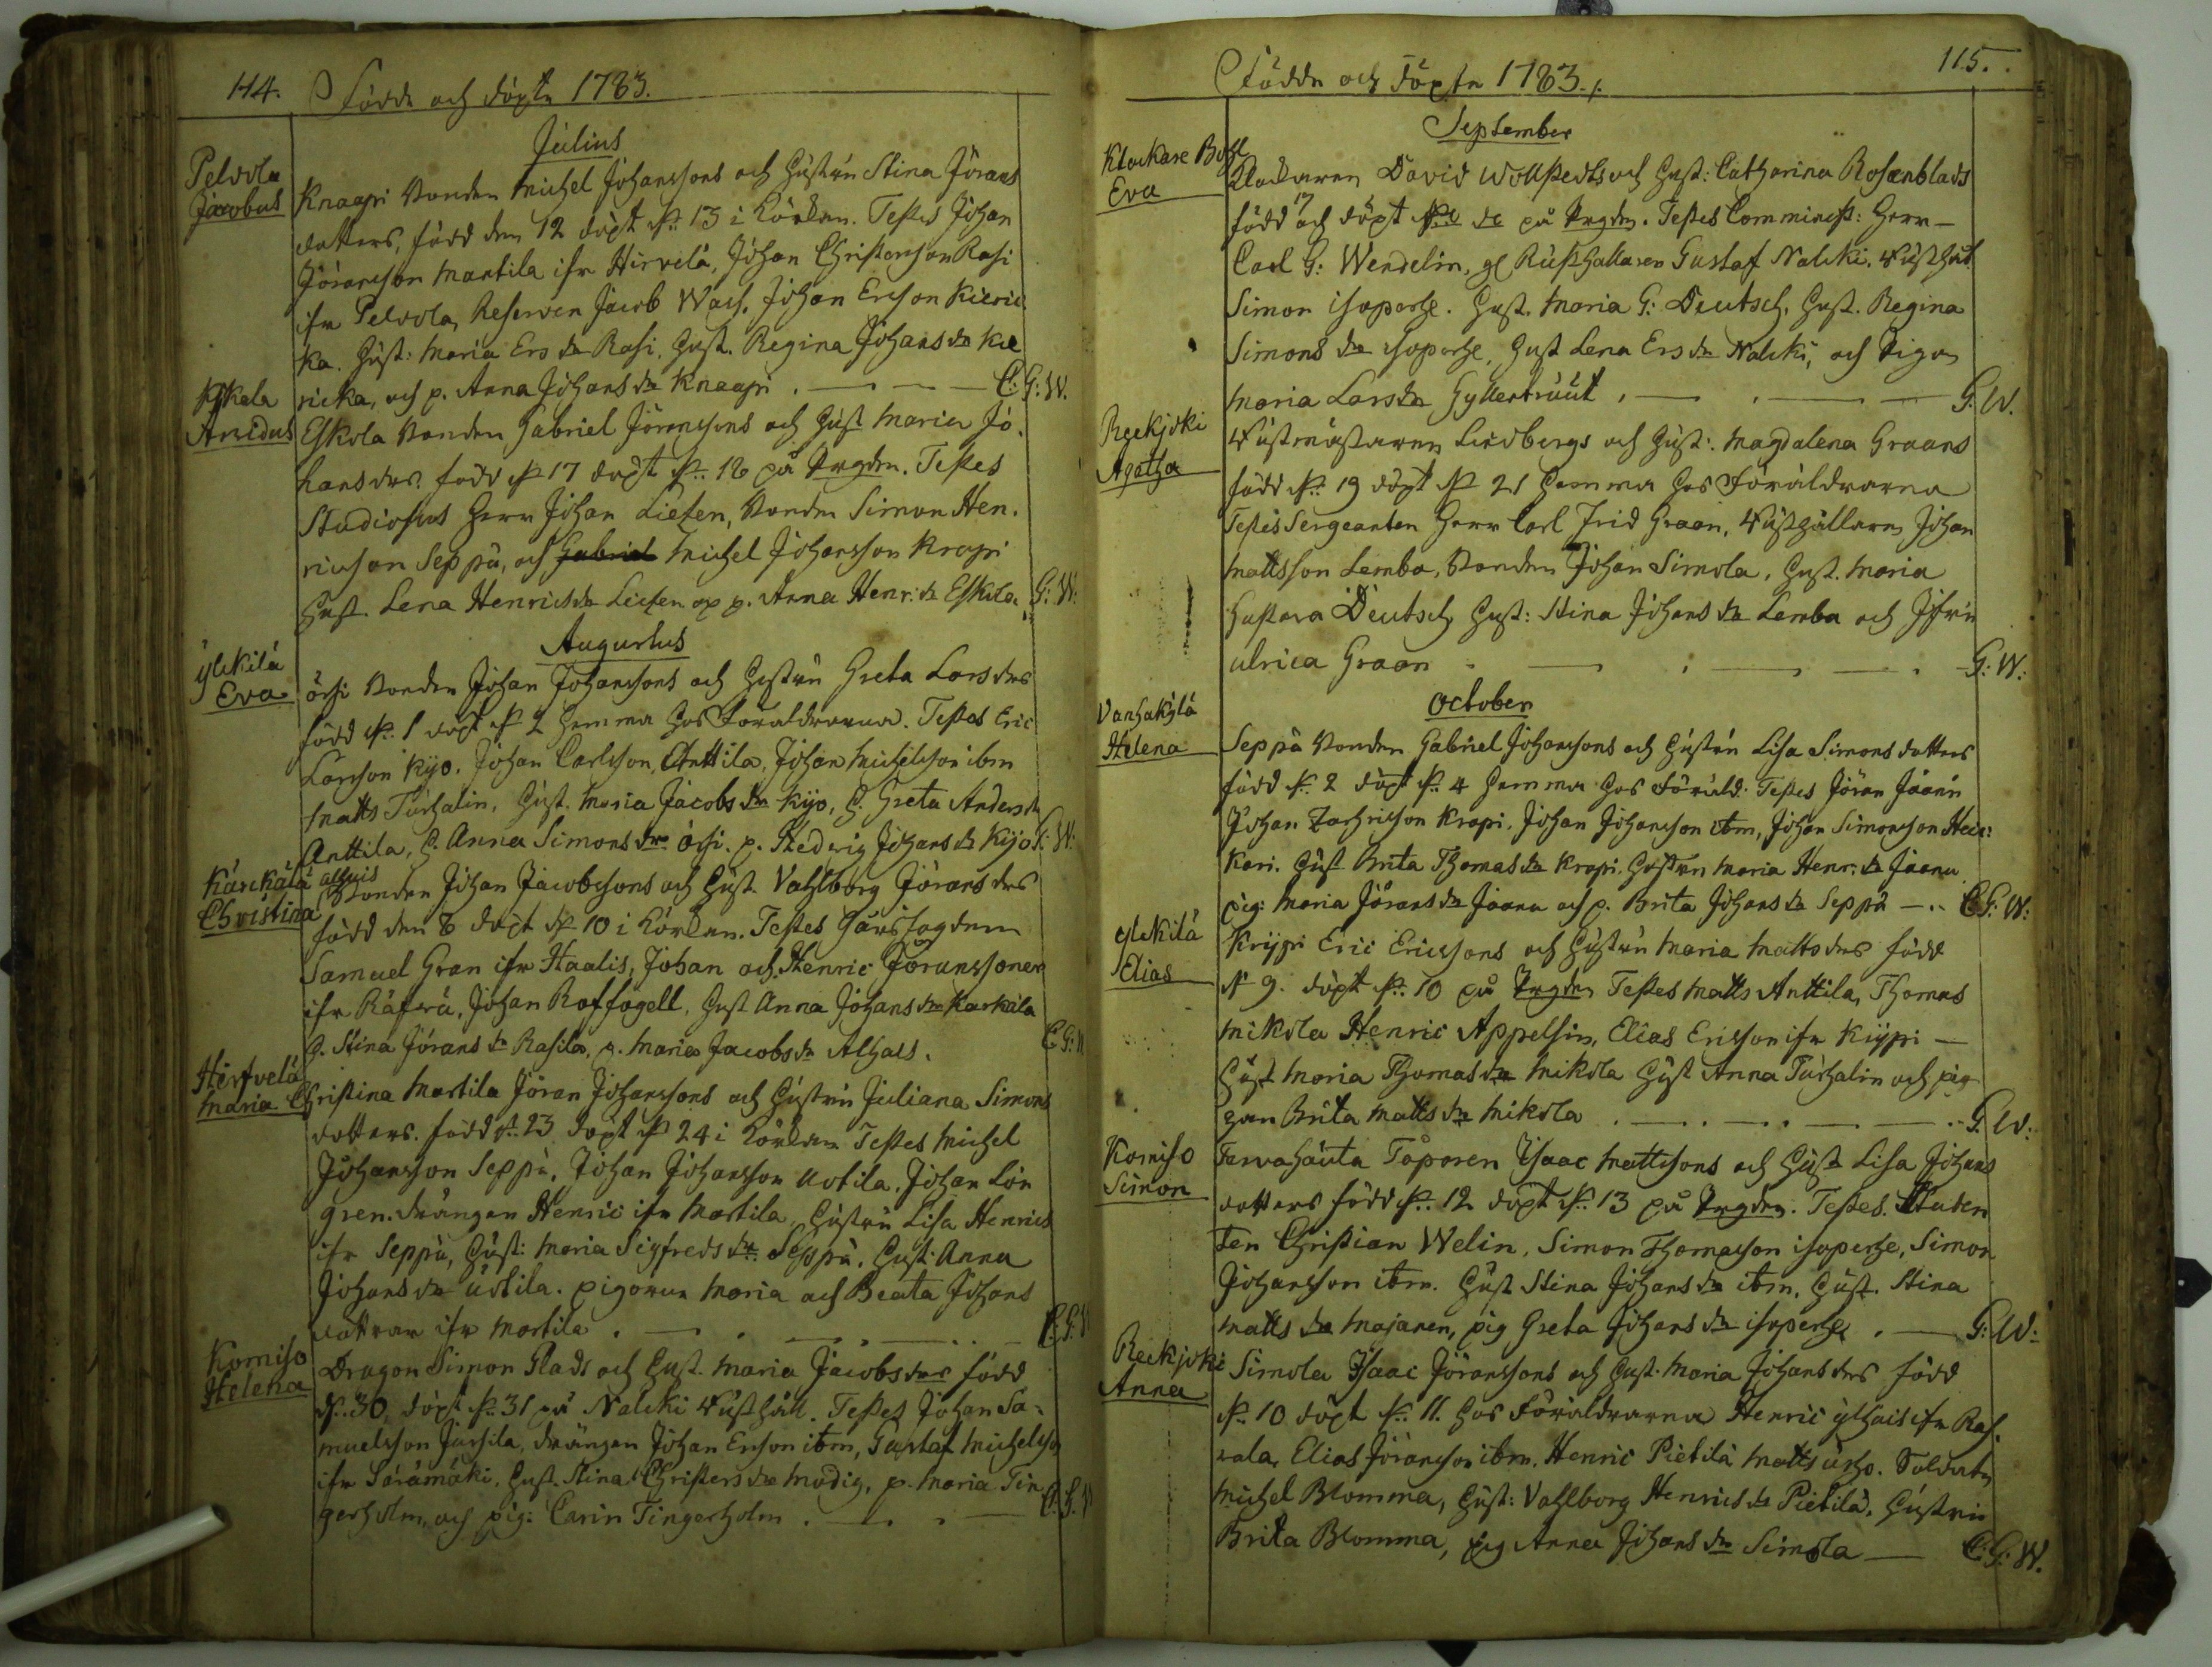 114. Födde och döpte 1783.
Julius
Pelvola
Jacobus
Knaapi Bonden Michel Johanssons och Hustrun Stina Jörans
dotters, född den 12 döpt d. 13 i Kÿrkan. Testes Johan
Jöransson Mantila ifr Hirvelä, Johan Christersson Rasi
ifr Pelvola, Reserven Jacob Wass, Johan Ersson Kieric
ka. Hust: Maria Ers dr Rasi, Hust. Regina Johans dr Kie
ricka, och p. Anna Johans dr Knaapi. C: G: W.
Eskola
Aredus
Eskola Bonden Gabriel Jöranssons och Hust Maria Jo-
hans drs. född d. 17 döpt d. 18 på Prgdn. Testes
Studiosus Herr Johan Lielen, Bonden Simon Hen-
ricsson Seppä, och Michel Johansson Krapi
Hust. Lena Henrics dr Lielen och p. Anna Henr: dr Eskola. G: W:
Augustus
ÿlekÿlä
Eva
örsi Bonden Johan Johanssons och Hustrun Greta Lars drs
född d. 1 döpt d. 2 hemma hos Föräldrarna. Testes Eric
Larsson Kijo, Johan Carlsson Anttila, Johan Michelsson ibm
Matts Turhalin, Hust. Maria Jacobs dr Kijo, H. Greta Anders dr
Anttila, H. Anna Simons dr örsi. p. Hedvig Johans dr Kijo G: W:
Kärckälä
Christina
alhais
Bonden Johan Jacobssons och Hust. Vahlborg Jörans drs
född den 8 döpt d. 10 i Kÿrkan. Testes
Samuel Gran ifr Haalis, Johan och Henric Jöranssoner
ifr Räfsä, Johan Roffogell, Hust Anna Johans dr Karkila
H. Stina Jörans dr Rasila, p. Maria Jacobs dr Alhais. C: G: W
Hirfvelä
Maria Christina
Martila Jöran Johanssons och Hustrun Juliana Simons
dotters. född d. 23 döpt d. 24 i Kÿrkan Testes Michel
Johansson Seppä, Johan Johansson Uotila, Johan Lön
gren. drängen Henric ifr Martila, Hustrun Lisa Henrics
ifr Seppä, Hust: Maria Sigfreds dr Seppä, Hust: Anna
Johans dr Uotila. pigorna Maria och Beata Johans
dottrar ifr Martila. C: G: W
Korniso
Helena
Dragon Simon Glads och Hust. Maria Jacobs drs född
d. 30, döpt d. 31 på Nalcki Rusthåll. Testes Johan Sa-
muelsson Jussila, drängen Johan Ersson ibm, Gustaf Michelsson
ifr Särämäki, Hust. Stina Christers dr Modig, p. Maria Tin
gerholm, och pig: Carin Tingerholm. C: G: W
Födde och Döpte 1783. 115.
September
Klockare Bohl
Eva
Klockaren David Wollstedts och Hust: Catharina Rosenblads
född 17 och döpt på Prgdn. Testes Comminist: Herr
Carl G: Wendelin, gl Rusthållaren Gustaf Nalcki, Rusthål
Simon isoperhe. Hust. Maria G: Deutsch, Hust. Regina
Simons dr isoperhe, Hust Lena Ers dr Nalcki, och Pigan
Maria Lars dr Gyllerkruut. G: W.
Reekjoki
Agatha
Rustmästaren Lindbergs och Hust: Magdalena Graans
född d. 19 döpt d. 21 hemma hos Föräldrarna
Testis Sergeanten Herr Carl Frid Graan, Rusthållaren Johan
Mattsson Lemba, Bonden Johan Simola, Hust. Maria
Gustava Deutsch, Hust: Stina Johans dr Lemba och Jfrun
Ulrica Graan G: W:
October
Vanhakÿlä
Helena
Seppä Bonden Gabriel Johanssons och Hustrun Lisa Simons dotters
född d. 2 döpt d. 4 hemma hos Föräld. Testes Jöran Jaanu
Johan Zachrisson Krapi, Johan Johansson ibm, Johan Simonsson Heic-
kari. Hust Brita Thomas dr Krapi, Hustrun Maria Henr: dr Jaanu
pig: Maria Jörans dr Jaanu och p. Brita Johans dr Seppä C: G: W:
ÿlekÿlä
Elias
Krijpi Eric Ericssons och Hustrun Maria Matts drs född
d. 9. döpt d. 10 på Prgdn Testes Matts Anttila, Thomas
Mikola Henric Appelsin, Elias Ericsson ifr Kijpi
Hust Maria Thomas dr Mikola Hust Anna Turhalin och pig-
gan Brita Matts dr Mikola G: W:
Korniso
Simon
Tervahauta Torparen Isaac Mattssons och Hust. Lisa Johans
dotters född d. 12 döpt d. 13 på Prgdn. Testes. Studen
ten Christian Welin, Simon Thomasson isoperhe, Simon
Johansson ibm. Hust Stina Johans dr ibm, Hust. Stina
Matts dr Majanen, pig Greta Johans dr isoperhe. G: W:
Reekjoki
Anna
Simola Isaac Jöranssons och Hust. Maria Johans drs född
d. 10 döpt d. 11. hos Föräldrarna Henric ÿlhais ifr Ras-
vala, Elias Jöransson ibm. Henric Pietilä Matts Soldaten
Michel Blomma, Hust: Vahlborg Henrics dr Pietilä, Hustrun
Brita Blomma, pig Anna Johans dr Simola C: G: W.